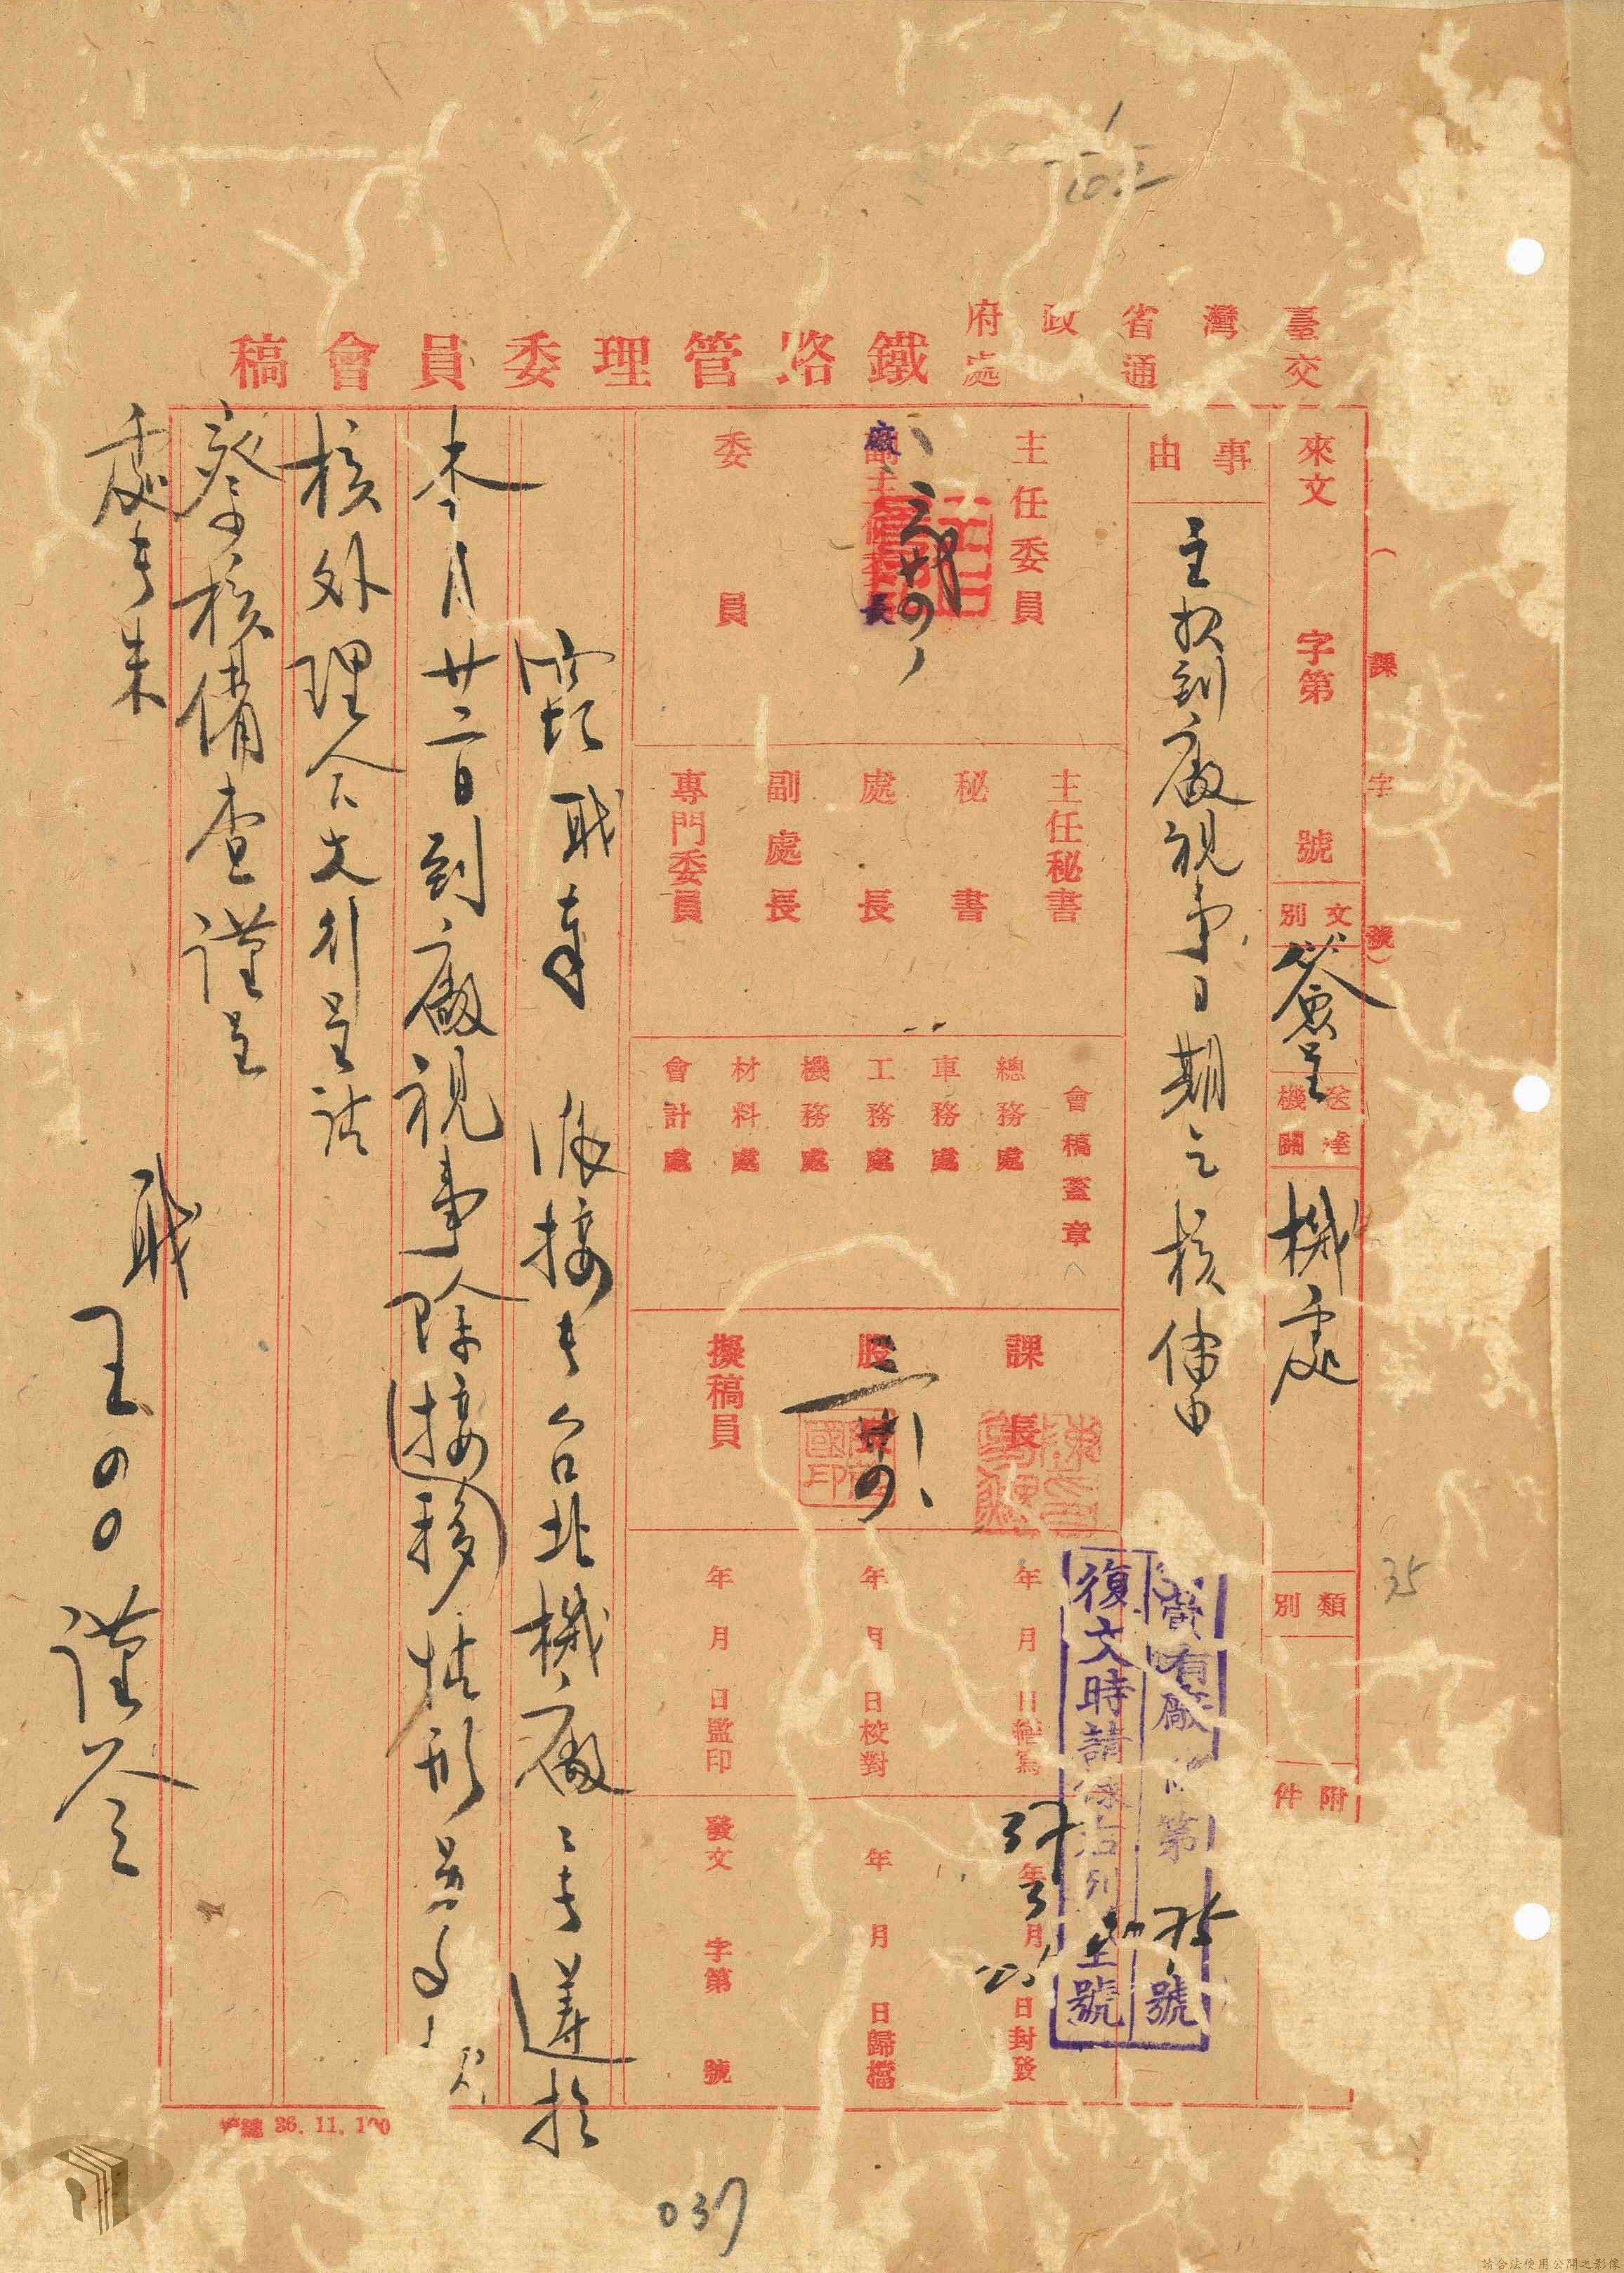 臺灣省政府
交通處
鐵路管理委員會稿
(課字號)
來文 字第 號
文別 簽呈
送達機關 機處
類別
附件
事由
主報到廠視事日期乞核備由
主任委員
副主任委員
廠長
委員
主任秘書
秘書
處長
副處長
專門委員
會稿蓋章
總務處
車務處
工務處
機務處
材料處
會計處
課長
股長
擬稿員
年 月 日繕寫
年 月 日校對
年 月 日監印
年 月 日封發
年 月 日歸檔
發文 字第 號
37 3
廠 第 號
復文時請 右列 號
竊職奉 派接長台北機廠廠長遵於
本月廿二日到廠視事除接移情形另
核外理合具文簽呈請
察核備查謹呈
處長朱
職 王〇〇謹簽
36. 11. 100
35
037
請合法使用公開之影像